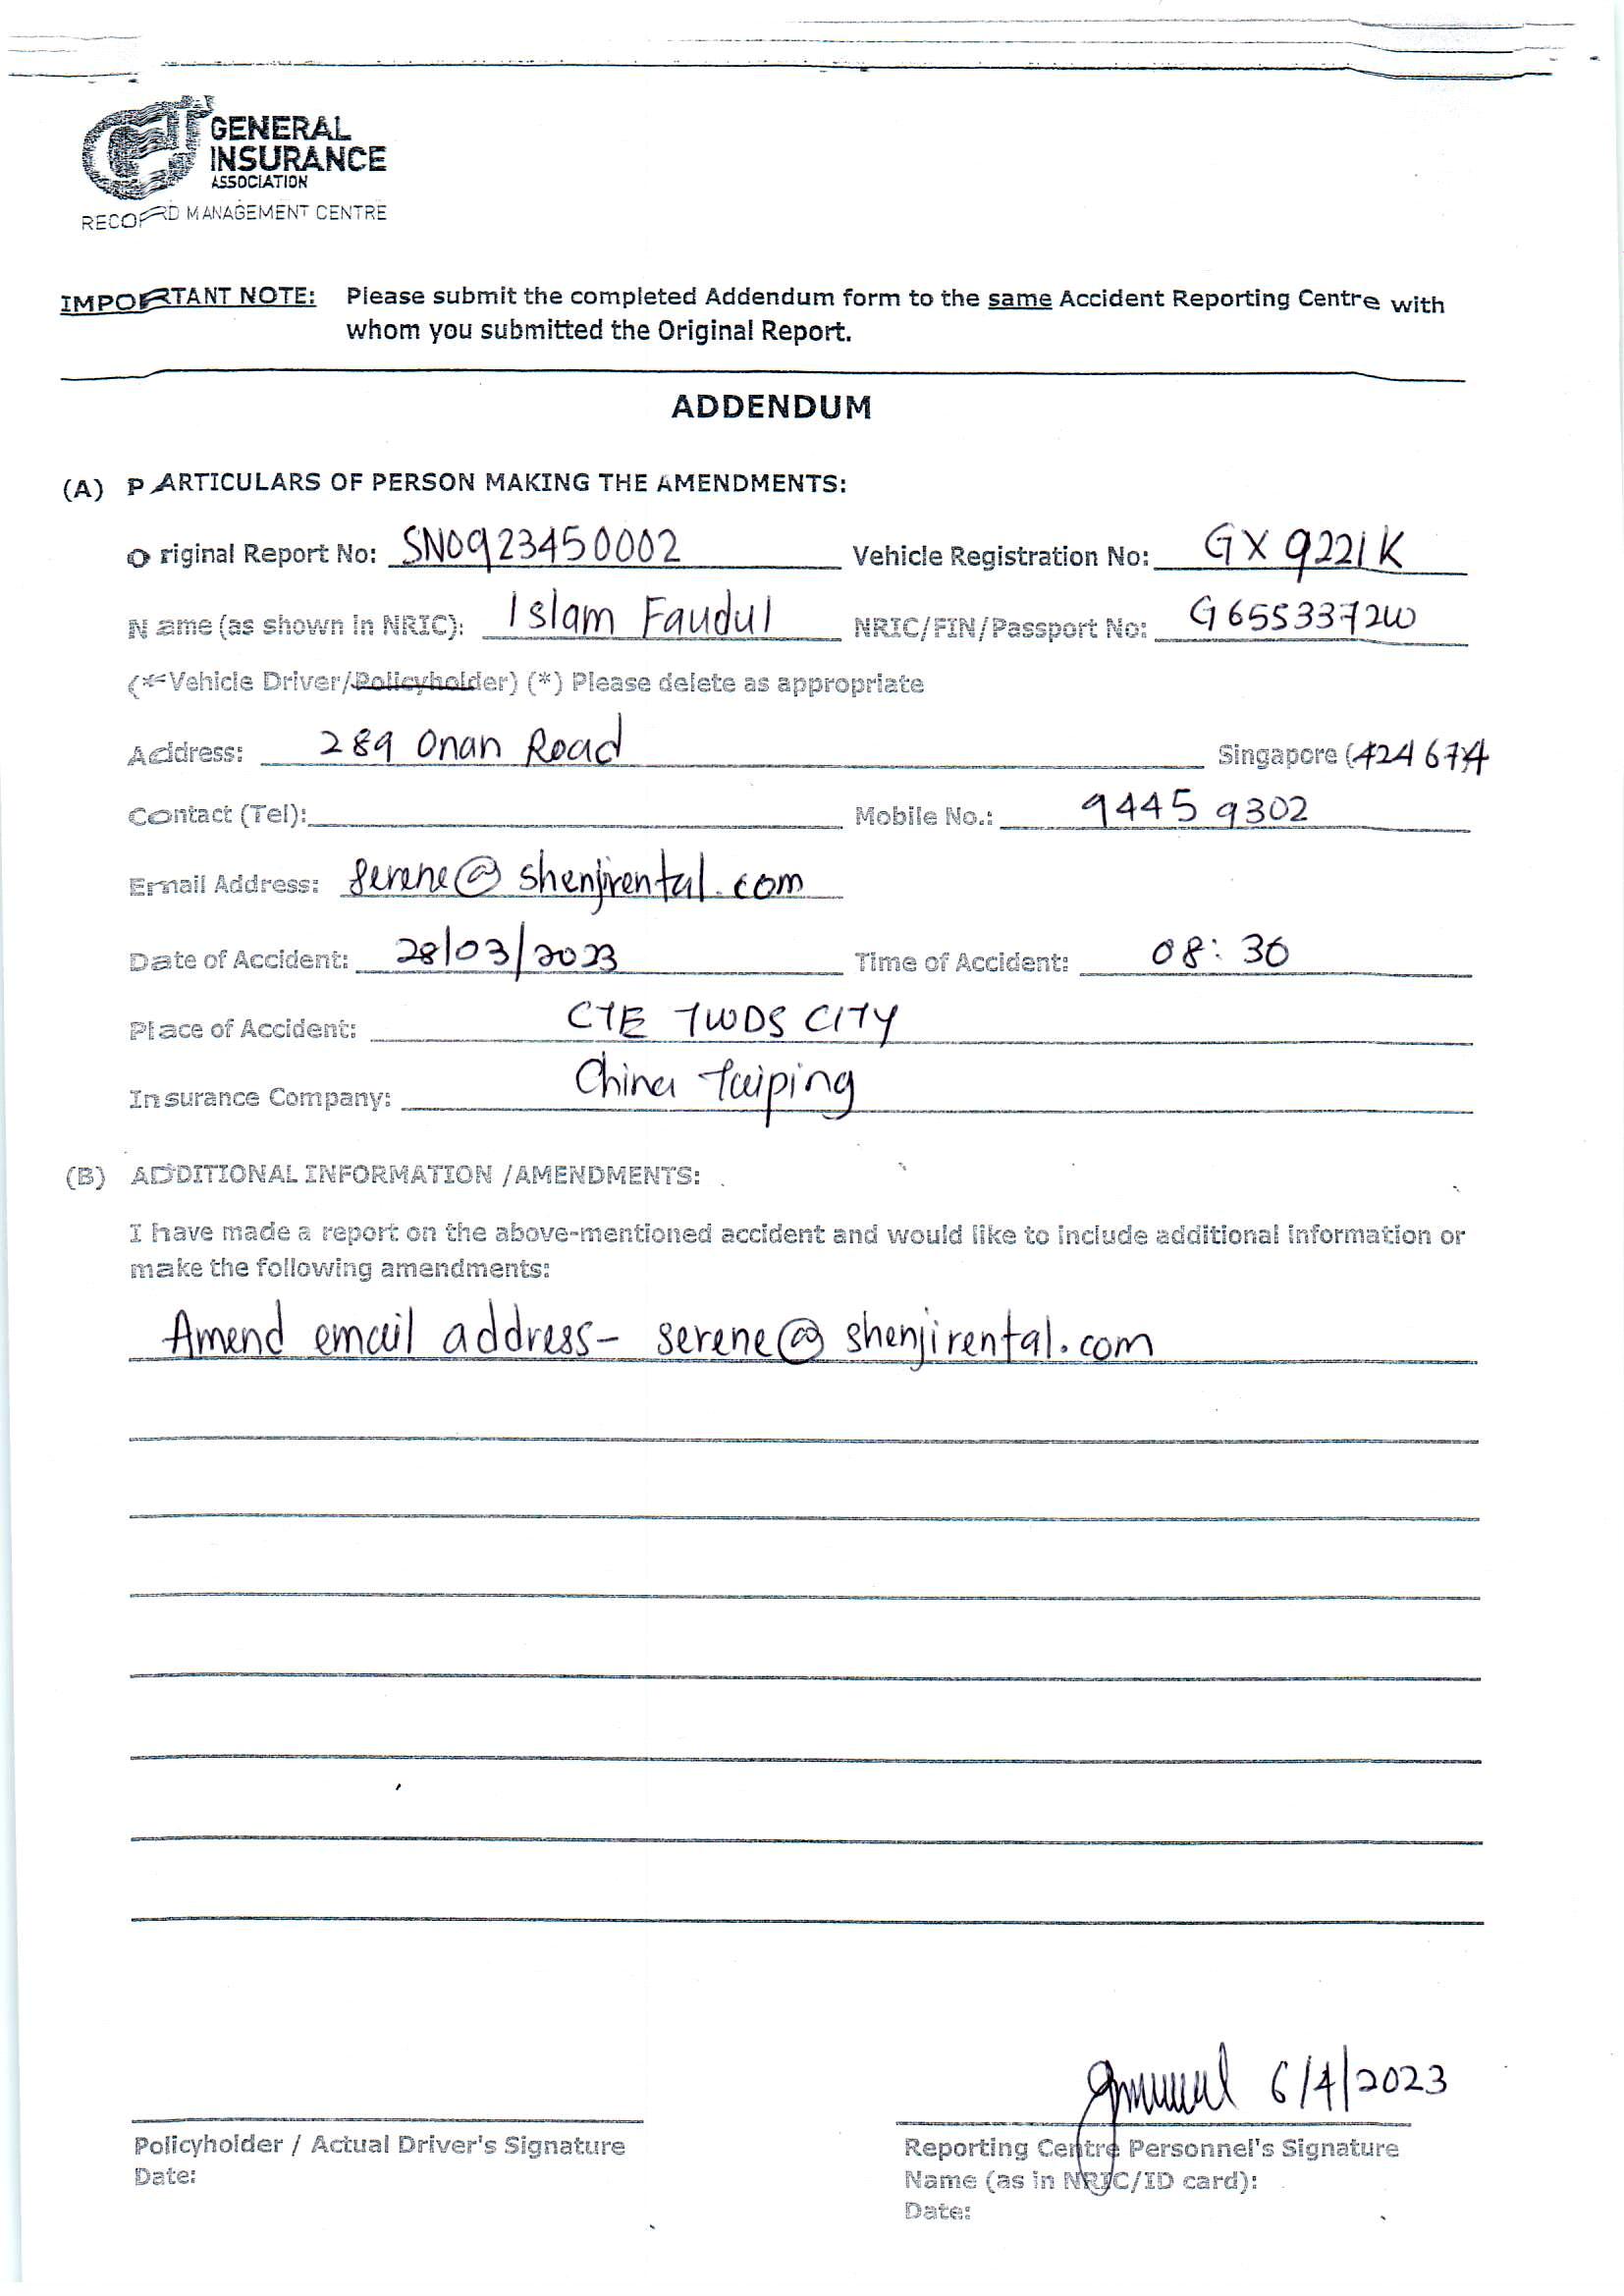 GENERAL
INSURANCE
ASSOCIATION
RECORD MANAGEMENT CENTRE
IMPORTANT NOTE: Please submit the completed Addendum form to the same Accident Reporting Centre with
whom you submitted the Original Report.
ADDENDUM
(A) PARTICULARS OF PERSON MAKING THE AMENDMENTS:
Original Report No: SN0923450002 Vehicle Registration No: GX9221K
Name (as shown in NRIC): Islam Faudul NRIC/FIN/Passport No: G6553372W
(*Vehicle Driver/Policyholder) (*) Please delete as appropriate
Address: 289 Onan Road Singapore (424674
Contact (Tel): Mobile No.: 9445 9302
Email Address: serene@shenjirental.com
Date of Accident: 28/03/2023 Time of Accident: 08:30
Place of Accident: CTE TWDS CITY
Insurance Company: China Taiping
(B) ADDITIONAL INFORMATION /AMENDMENTS:
I have made a report on the above-mentioned accident and would like to include additional information or
make the following amendments:
Amend email address- serene@shenjirental.com
6/4/2023
Policyholder / Actual Driver's Signature Reporting Centre Personnel's Signature
Date: Name (as in NRIC/ID card):
Date: